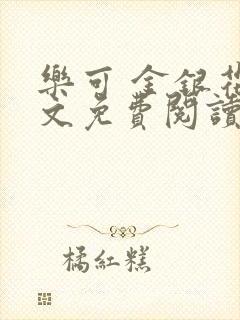 樂可 金銀花
文免費閱讀
橘紅糕